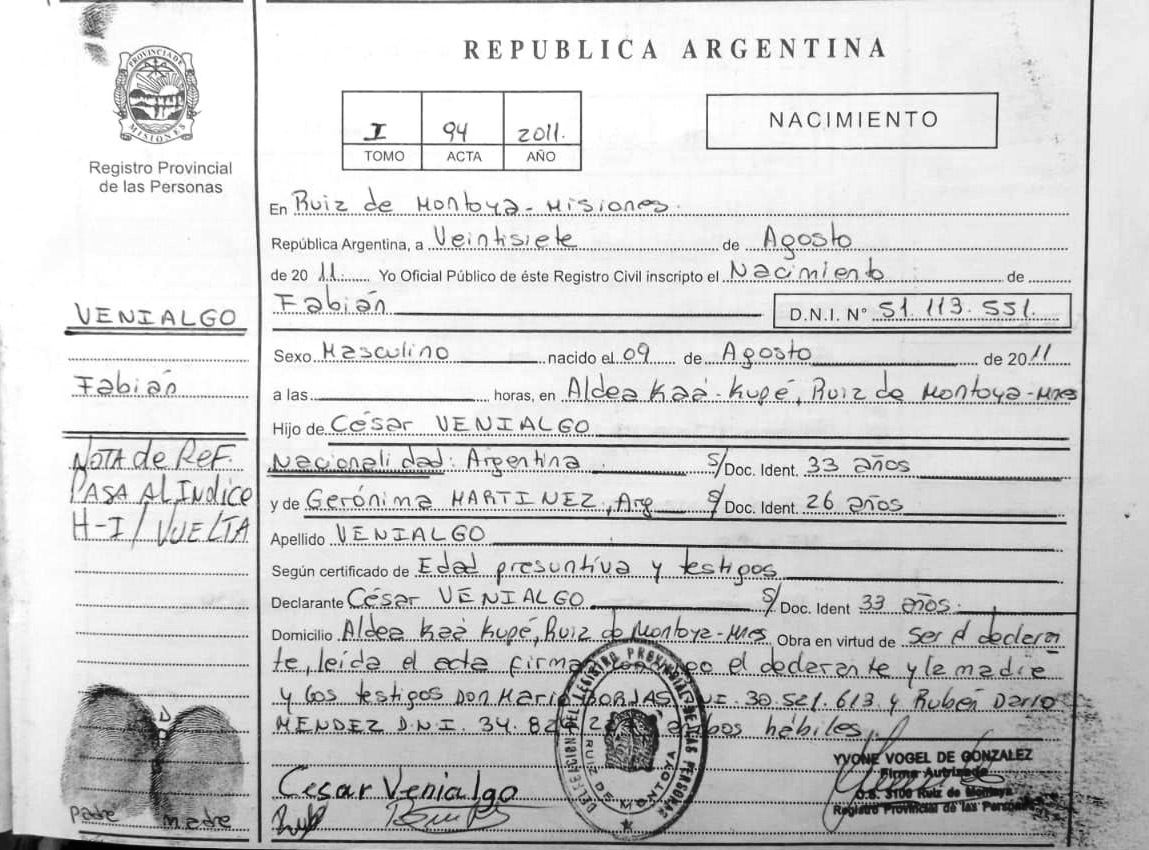 REPUBLICA ARGENTINA
PROVINCIA DE MISIONES
Registro Provincial
de las Personas
I 94 2011.
TOMO ACTA AÑO
NACIMIENTO
En Ruiz de Montoya - Misiones.
República Argentina, a Veintisiete de Agosto
de 20 11. Yo Oficial Público de éste Registro Civil inscripto el Nacimiento de
Fabián D.N.I. N° 51.113.551.
VENIALGO
Fabián
NOTA de Ref.
PASA AL Indice
H-I / VUELTA
Sexo Masculino nacido el 09 de Agosto de 2011
a las horas, en Aldea Kaá-Kupé, Ruiz de Montoya-Mnes
Hijo de César VENIALGO
Nacionalidad: Argentina S/ Doc. Ident. 33 años
y de Gerónima MARTINEZ, Arg S/ Doc. Ident. 26 años
Apellido VENIALGO
Según certificado de Edad presuntiva y testigos
Declarante César VENIALGO S/ Doc. Ident 33 años.
Domicilio Aldea Kaá Kupé, Ruiz de Montoya-Mnes Obra en virtud de ser el declaran
te, leída el acta firma el declarante y la madre
y los testigos Don Mario BORJAS 30.521.613 y Rubén Dario
MENDEZ D.N.I. 34. hábiles.
Cesar Venialgo
RUIZ DE MONTOYA
YVONE VOGEL DE GONZALEZ
Firma Autrizada
O.S. 3106 Ruiz de Montoya
Registro Provincial de las Personas
Padre Madre